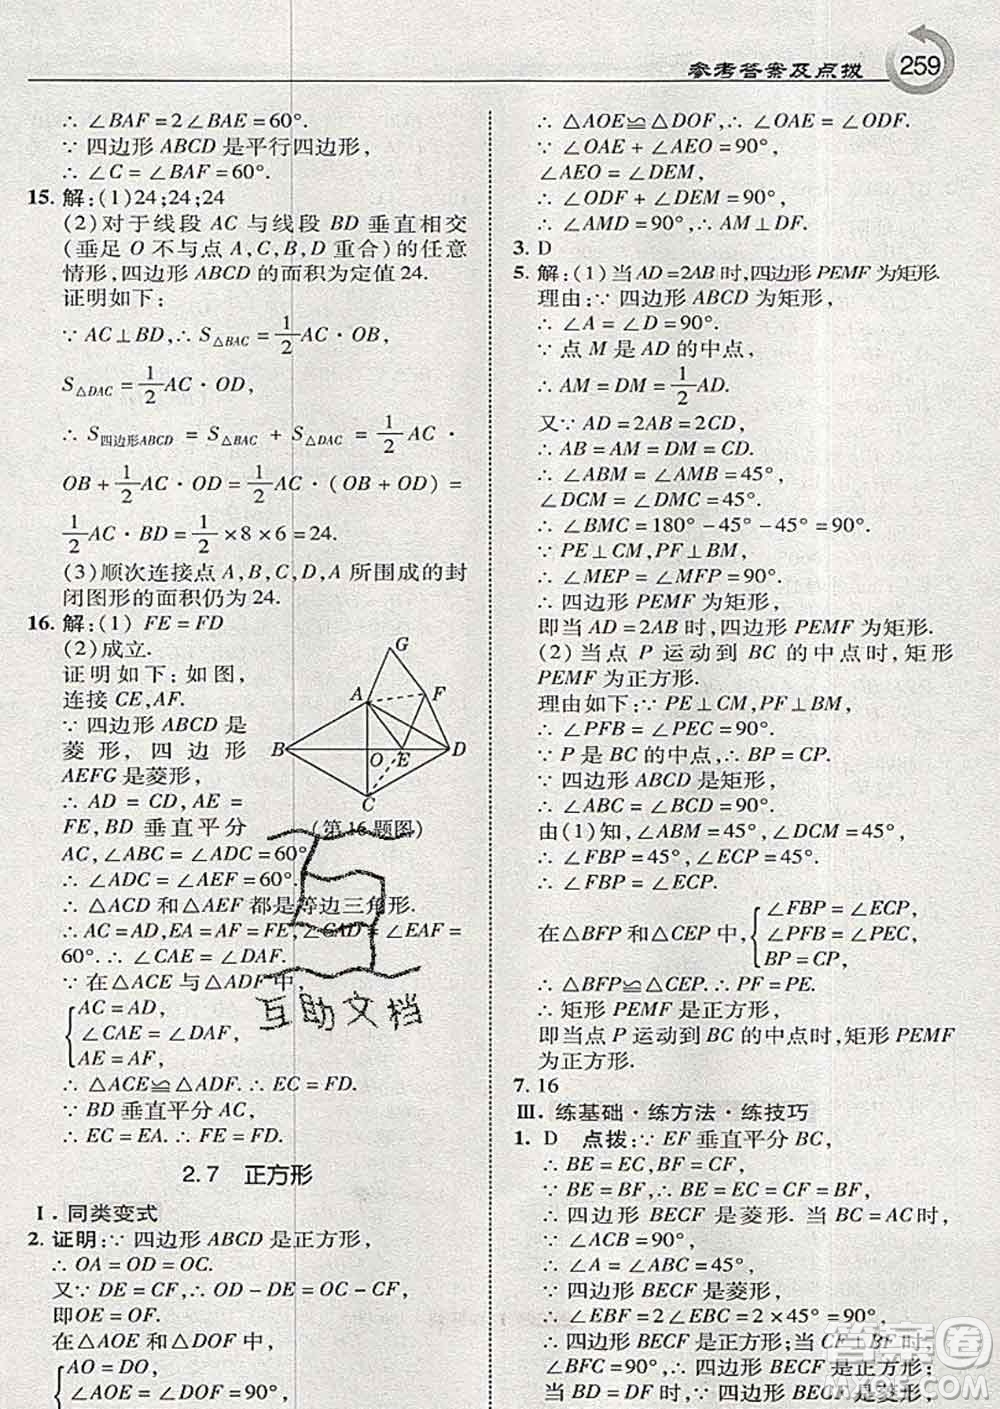 参考答案及点拨 259
∴ ∠BAF=2∠BAE=60°.
∵ 四边形 ABCD 是平行四边形,
∴ ∠C=∠BAF=60°.
15. 解:(1)24;24;24
(2)对于线段 AC 与线段 BD 垂直相交
(垂足 O 不与点 A,C,B,D 重合)的任意
情形,四边形 ABCD 的面积为定值 24.
证明如下:
∵ AC⊥BD,∴ S△BAC=1/2 AC·OB,
S△DAC=1/2 AC·OD,
∴ S四边形ABCD = S△BAC + S△DAC = 1/2 AC·
OB+1/2 AC·OD=1/2 AC·(OB+OD)=
1/2 AC·BD=1/2×8×6=24.
(3)顺次连接点 A,B,C,D,A 所围成的封
闭图形的面积仍为 24.
16. 解:(1) FE=FD
(2)成立.
证明如下:如图,
连接 CE,AF.
∵ 四边形 ABCD 是
菱形,四边形
AEFG 是菱形,
∴ AD = CD,AE =
FE,BD 垂直平分
AC,∠ABC=∠ADC=60°
∴ ∠ADC=∠AEF=60°.
∴ △ACD 和△AEF 都是等边三角形.
∴ AC=AD,EA=AF=FE,∠CAD=∠EAF=
60°. ∴ ∠CAE=∠DAF.
∵ 在△ACE 与△ADF 中,
{AC=AD,
∠CAE=∠DAF,
AE=AF,
∴ △ACE≌△ADF. ∴ EC=FD.
∵ BD 垂直平分 AC,
∴ EC=EA. ∴ FE=FD.
G
A
F
B
O
E
D
C
(第 16 题图)
互助文档
2.7 正方形
Ⅰ. 同类变式
2. 证明:∵ 四边形 ABCD 是正方形,
∴ OA=OD=OC.
又∵ DE=CF,∴ OD-DE=OC-CF,
即OE=OF.
在△AOE 和△DOF 中,
{AO=DO,
∠AOD=∠DOF=90°,
∴ △AOE≌△DOF,∴ ∠OAE=∠ODF.
∵ ∠OAE+∠AEO=90°,
∠AEO=∠DEM,
∴ ∠ODF+∠DEM=90°.
∴ ∠AMD=90°,∴ AM⊥DF.
3. D
5. 解:(1)当 AD=2AB 时,四边形 PEMF 为矩形.
理由:∵ 四边形 ABCD 为矩形,
∴ ∠A=∠D=90°.
∵ 点 M 是 AD 的中点,
∴ AM=DM=1/2 AD.
又∵ AD=2AB=2CD,
∴ AB=AM=DM=CD.
∴ ∠ABM=∠AMB=45°,
∠DCM=∠DMC=45°.
∴ ∠BMC=180°-45°-45°=90°.
∵ PE⊥CM,PF⊥BM,
∴ ∠MEP=∠MFP=90°.
∴ 四边形 PEMF 为矩形,
即当 AD=2AB 时,四边形 PEMF 为矩形.
(2)当点 P 运动到 BC 的中点时,矩形
PEMF 为正方形.
理由如下:∵ PE⊥CM,PF⊥BM,
∴ ∠PFB=∠PEC=90°.
∵ P 是 BC 的中点,∴ BP=CP.
∵ 四边形 ABCD 是矩形,
∴ ∠ABC=∠BCD=90°.
由(1)知,∠ABM=45°,∠DCM=45°,
∴ ∠FBP=45°,∠ECP=45°,
∴ ∠FBP=∠ECP.
在△BFP 和△CEP 中,{∠FBP=∠ECP,
∠PFB=∠PEC,
BP=CP,
∴ △BFP≌△CEP,∴ PF=PE.
∴ 矩形 PEMF 是正方形,
即当点 P 运动到 BC 的中点时,矩形 PEMF
为正方形.
7. 16
Ⅲ. 练基础·练方法·练技巧
1. D 点拨:∵ EF 垂直平分 BC,
∴ BE=EC,BF=CF.
∵ CF=BE,∴ BE=EC=CF=BF,
∴ 四边形 BECF 是菱形. 当 BC=AC 时,
∵ ∠ACB=90°,
∴ ∠A=∠EBC=45°.
∵ 四边形 BECF 是菱形,
∴ ∠EBF=2∠EBC=2×45°=90°,
∴ 四边形 BECF 是正方形;当 CF⊥BF 时,
∠BFC=90°,∴ 四边形 BECF 是正方形;
当 BD=DF 时,∵ 四边形 BECF 是菱形,
答案圈
MXQE.COM